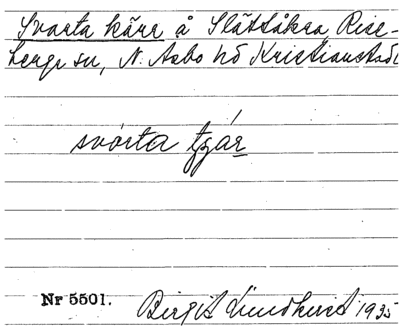 Svarta kärr å Slättåkra, Rise-
berga sn, N. Åsbo hd Kristianstads
svarta tɟär
Nr 5501. Birgit Lundkvist 1935